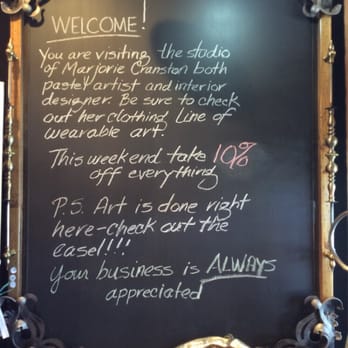 WELCOME!
You are visiting the studio
of Marjorie Cranston both
pastel artist and interior
designer. Be sure to check
out her clothing line of
wearable art!
This weekend take 10%
off everything
P.S. Art is done right
here-check out the
easel!!!
Your business is ALWAYS
appreciated